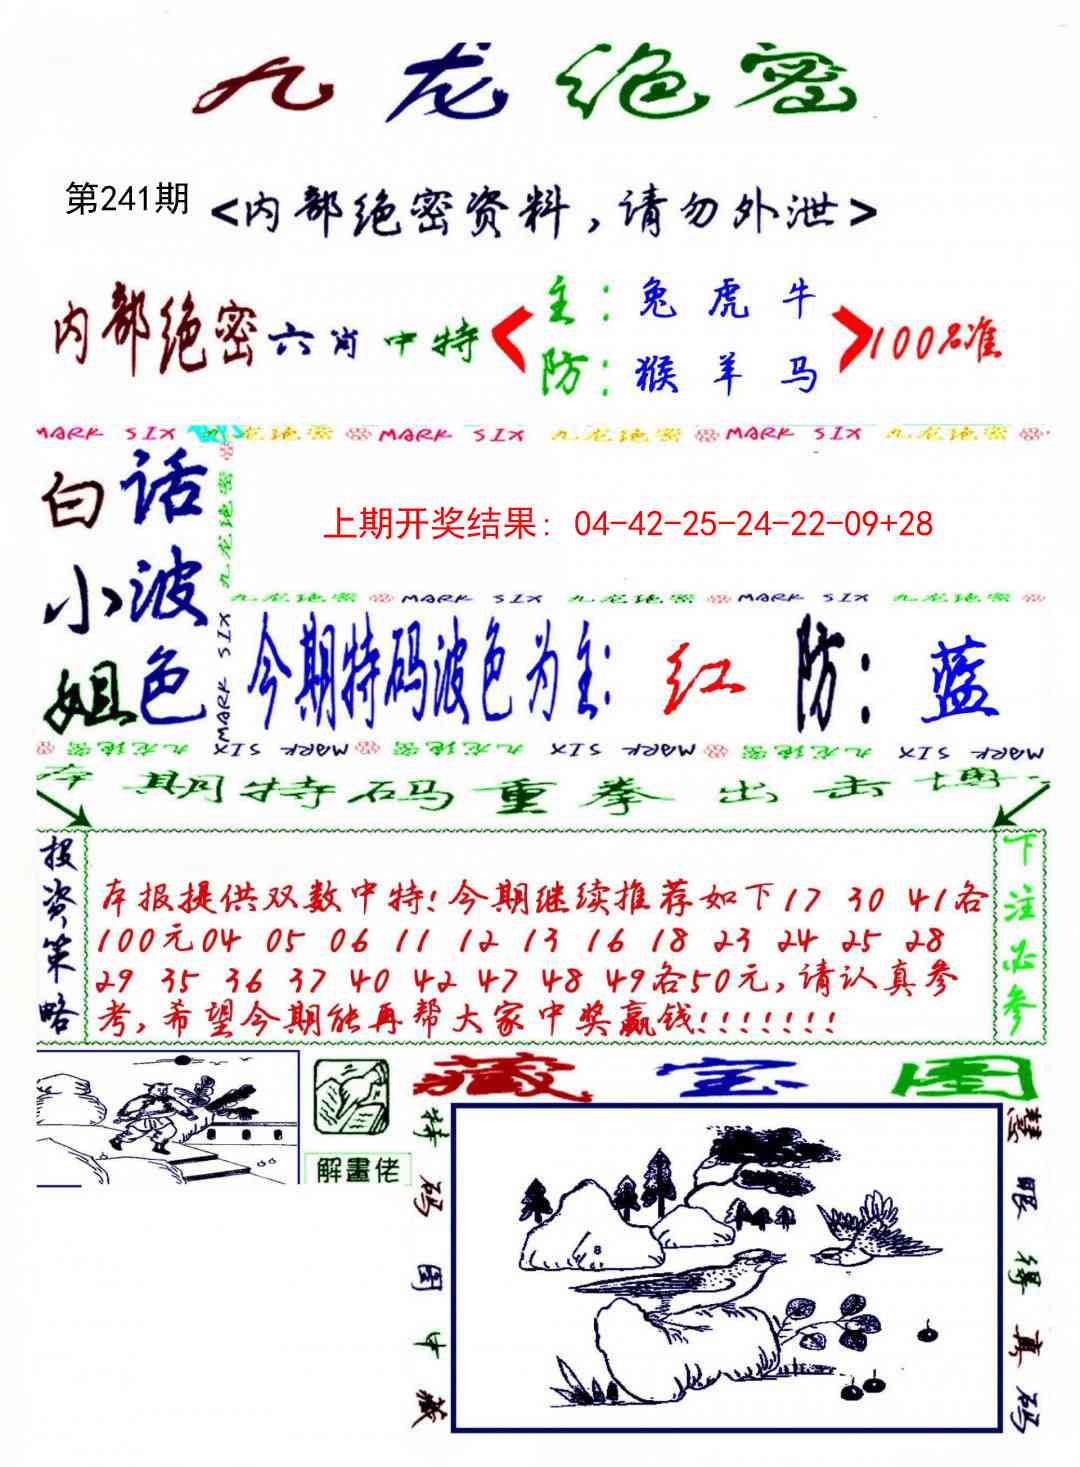 九龙绝密
第241期 <内部绝密资料,请勿外泄>
内部绝密六肖中特
主:兔 虎 牛
防:猴 羊 马
100%准
MARK SIX 九龙绝密 MARK SIX 九龙绝密 MARK SIX 九龙绝密
白话
小波
姐色
九龙绝密
MARK SIX
上期开奖结果: 04-42-25-24-22-09+28
九龙绝密 MARK SIX 九龙绝密 MARK SIX 九龙绝密
今期特码波色为主: 红 防: 蓝
九龙绝密 MARK SIX 九龙绝密 MARK SIX 九龙绝密 MARK SIX
本期特码重拳出击博
投资策略
本报提供双数中特!今期继续推荐如下17 30 41各
100元04 05 06 11 12 13 16 18 23 24 25 28
29 35 36 37 40 42 47 48 49各50元,请认真参
考,希望今期能再帮大家中奖赢钱!!!!!!!
下注必参
解畫佬
藏宝图
特码图中藏
8
慧眼得真码